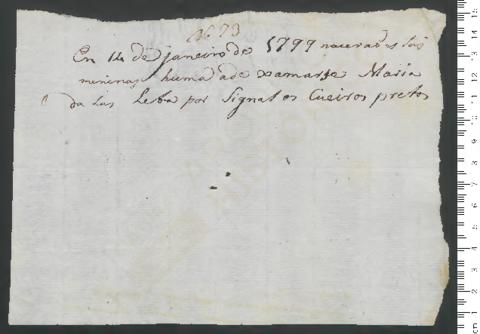 Nº 73
En 14 de janeiro de 1799 naceraõ es las
meninas huma ade xamarçe Maria
da Lus Leba por Signal os Cueiros pretos